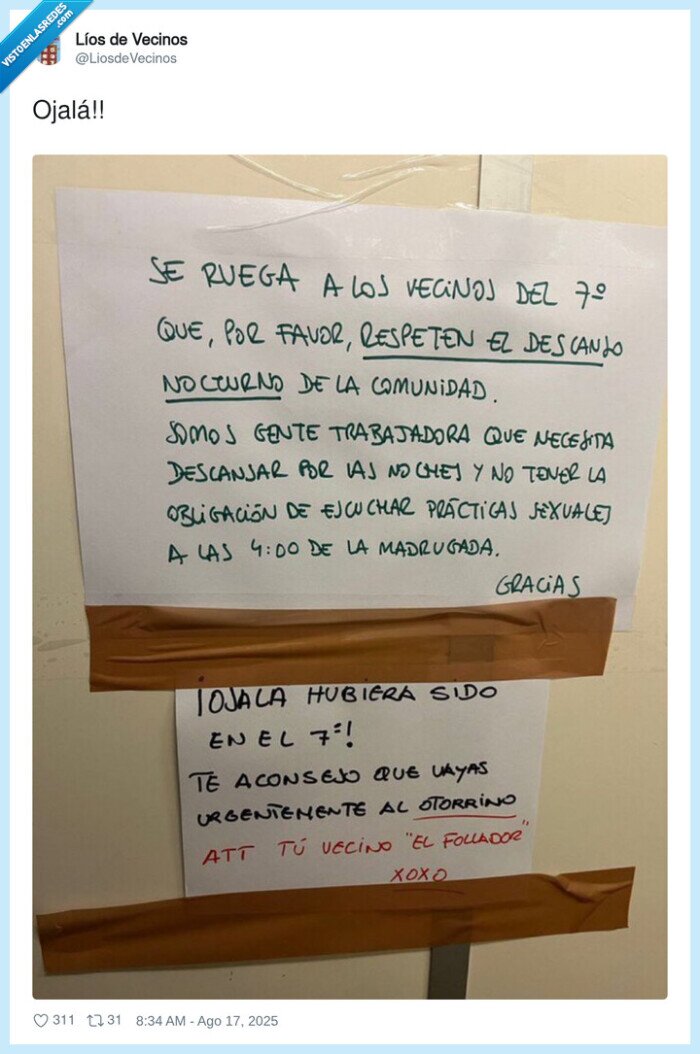 VISTOENLASREDES
.com
Líos de Vecinos
@LiosdeVecinos
Ojalá!!
SE RUEGA A LOS VECINOS DEL 7º
QUE, POR FAVOR, RESPETEN EL DESCANSO
NOCTURNO DE LA COMUNIDAD.
SOMOS GENTE TRABAJADORA QUE NECESITA
DESCANSAR POR LAS NOCHES Y NO TENER LA
OBLIGACIÓN DE ESCUCHAR PRÁCTICAS SEXUALES
A LAS 4:00 DE LA MADRUGADA.
GRACIAS
¡OJALA HUBIERA SIDO
EN EL 7º!
TE ACONSEJO QUE VAYAS
URGENTEMENTE AL OTORRINO
ATT TÚ VECINO "EL FOLLADOR"
XOXO
311 31 8:34 AM - Ago 17, 2025